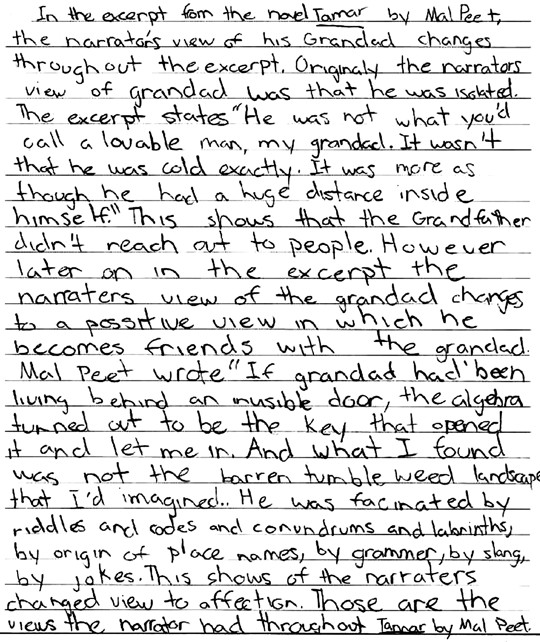 In the excerpt fom the novel Tamar by Mal Peet,
the narrator's view of his Grandad changes
throughout the excerpt. Originaly the narrators
view of grandad was that he was isolated.
The excerpt states "He was not what you'd
call a lovable man, my grandad. It wasn't
that he was cold exactly. It was more as
though he had a huge distance inside
himself." This shows that the Grandfather
didn't reach out to people. However
later on in the excerpt the
narraters view of the grandad changes
to a possitive view in which he
becomes friends with the grandad.
Mal Peet wrote "If grandad had been
living behind an invisible door, the algebra
turned out to be the key that opened
it and let me in. And what I found
was not the barren tumble weed landscape
that I'd imagined.. He was facinated by
riddles and codes and conundrums and labrinths,
by origin of place names, by grammer, by slang,
by jokes. This shows of the narraters
changed view to affection. Those are the
views the narrator had throughout Tamar by Mal Peet.